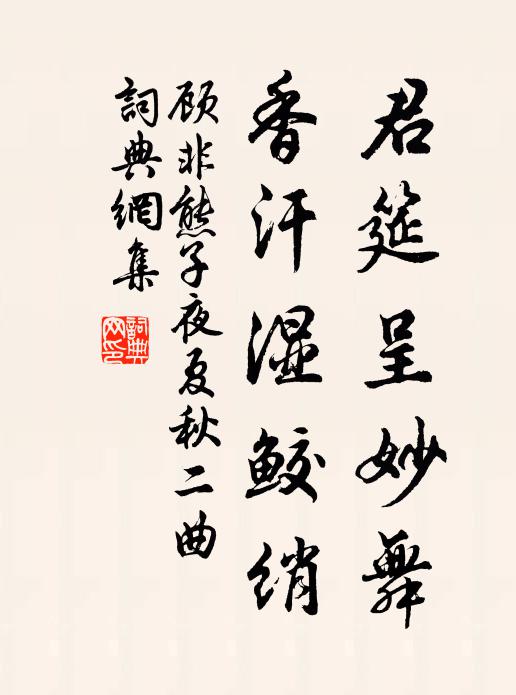 君筵呈妙舞
香汗湿鲛绡
顾非熊子夜夏秋二曲
詞典網集
詞典网印